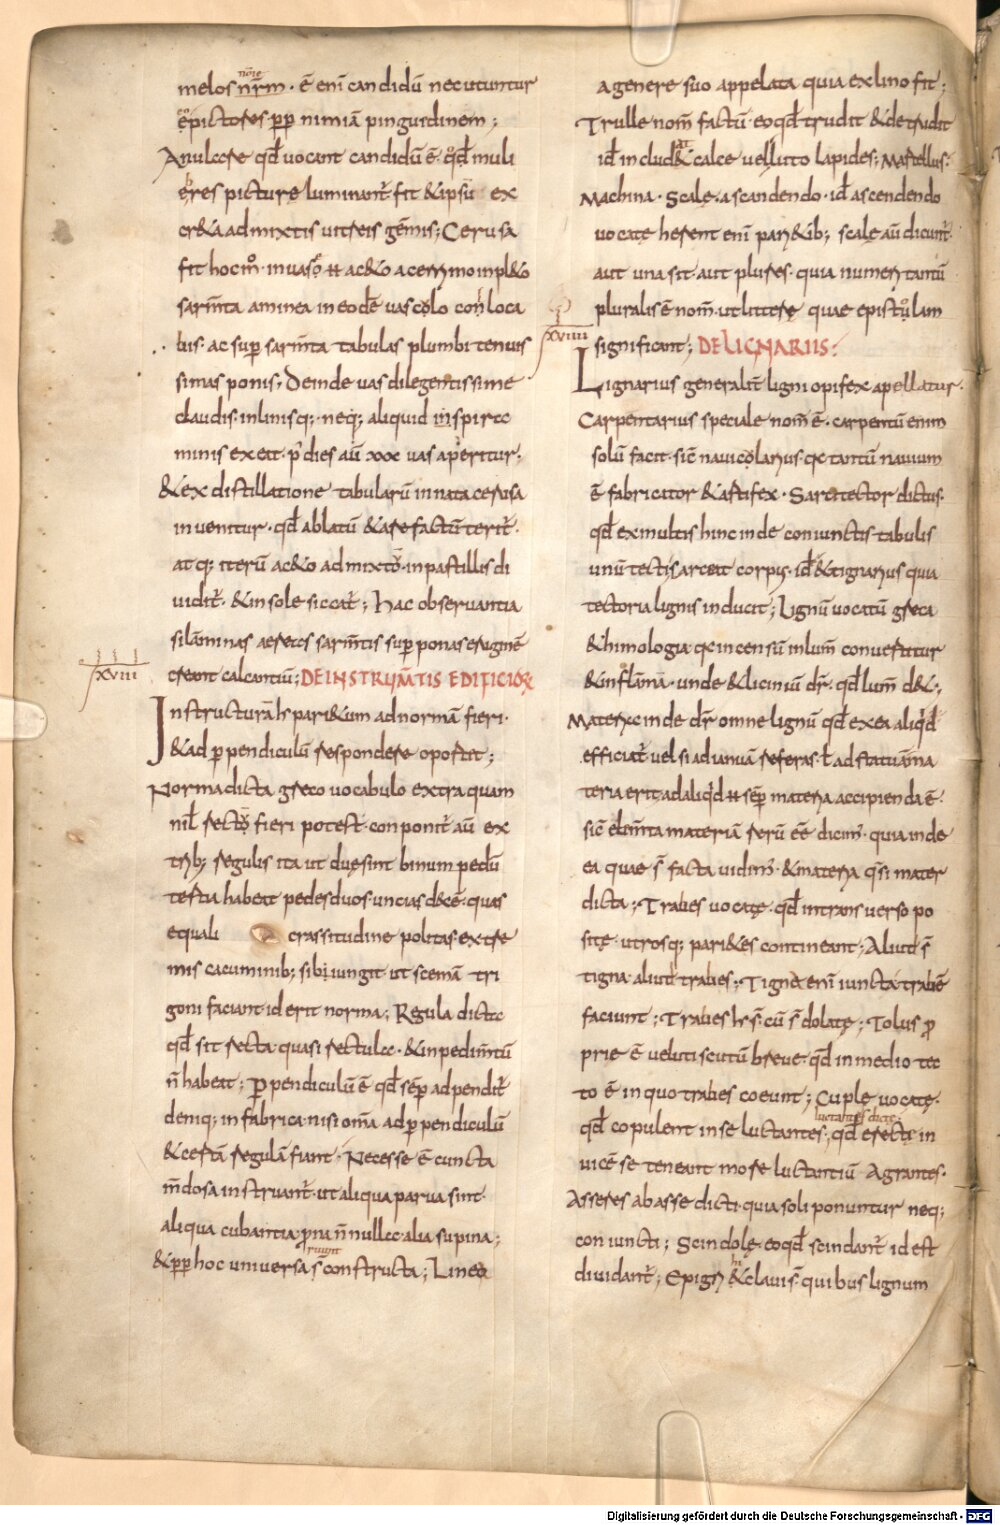 melos nr̄m · ē eni candidū nec utuntur
ēpictores pp̲ nimiā pinguidinem ;
Anulcere qđ vocant candidū ē · qđ muli
eres picture luminant̄ · fit & ipsū ex
cr&a admixtis vitreis gēmis ; Cerusa
fit hoc mͦ · in vaso ac&o acerrimo inpl&o
sarm̄ta aminea in eodē vascolo conloca
bis · ac sup̲ sarm̄ta tabulas plumbi tenuis
simas ponis ; Deinde vas dilegentissime
claudis · inlinisq; · neq; aliquid inspira
minis exeat · p̄ dies aū xxx vas aperitur ;
& ex distillatione tabularū innata cerusa
invenitur · qđ ablatū & arefactū terit̄ ·
atq; iterū ac&o admixto · in pastillis di
vidit̄ · & in sole siccat̄ ; Hac observantia
si lāminas aereas sarm̄tis sup̲ponas erugine
creant calcantiū ; DE INSTRUM̄TIS EDIFICIORꝜ
XVIII
Instructurā lr̄ pari&um ad normā fieri ·
& ad p̲pendiculū respondere oportet ;
Norma dicta greco vocabulo extra quam
nil̄ recto fieri potest · conponit̄ aū ex
trib; regulis ita ut due sint binum pedū
tertia habeat pedes duos · uncias dece · quas
equali crassitudine politas extre
mis cacuminib; sibi iungit ut scemā tri
goni faciant id erit norma ; Regula dicta
qđ sit recta quasi rectula · & inpedim̄tū
n̄ habeat ; P̲pendiculū ē qđ semp̲ adpendit̄
deniq; in fabrica · nisi om̄a ad p̲pendiculū
& certā regulā fiant · Necesse ē cuncta
m̄dosa instruant̄ · ut aliqua parva sint ·
aliqua cubantia prona n̄nulla · alia supina ;
& pp̲ hoc universa s̄ constructa ; Linea
a genere suo appelata quia ex lino fit ;
Trulle nom̄ factū · eo qđ trudit & detrudit
id̄ includ& calce vel luto lapides ; Martellus ·
Machina · Scale · a scandendo · id̄ ascendendo
vocate herent eni pari&ib; scale aū dicunt̄
aut una sit · aut plures · quia numeri tantū
pluralis ē nom̄ · ut littere quae epistulam
XVIIII
significant ; DE LIGNARIIS :
Lignarius generalit̄ ligni opifex apellatur ·
Carpentarius speciale nom̄ ē · carpentū enim
solū facit · sic̄ navicolarius · qx tantū navium
ē fabricator & artifex · Sarcitector dictus ·
qđ ex multis hinc inde coniunctis tabulis
unū tecti sarciat corpus · id̄ & tignarius quia
tectoria lignis inducit ; Lignū vocatū greca
& himologia qx incensū in lum̄ convertitur
& in flāmā · unde & licinium dr̄ · qđ lum̄ d& ;
Materie inde dr̄ omne lignū qđ ex ea aliqđ
efficiat̄ vel si ad ianuā referas · l̄ ad statuā ma
teria erit ad aliqđ semp̲ materia accipienda ē ·
sic̄ elem̄ta materiā rerū ēē dicim̄ · quia inde
ea quae s̄ facta vidim̄ · & materia qsī mater
dicta ; Trabes vocate · qđ in transverso po
site · utrosq; pari&es contineant ; Aliud s̄
tigna · aliud trabes ; Tigna eni iuncta trabē
faciunt ; Trabes lr̄ s̄ · cū s̄ dolate ; Tolus p̄
prie ē veluti scutū breve · qđ in medio tec
to ē in quo trabes coeunt ; Cuple vocate ·
qđ copulent in se luctantes ; qđ erecte in
vicē se teneant more luctantiū Agrantes ·
Asseres ab asse dicti · quia soli ponuntur neq;
coniuncti ; Scindole eo qđ scindant̄ id est
dividant̄ ; Epigri & clavi s̄ quibus lignum
Digitalisierung gefördert durch die Deutsche Forschungsgemeinschaft - DFG